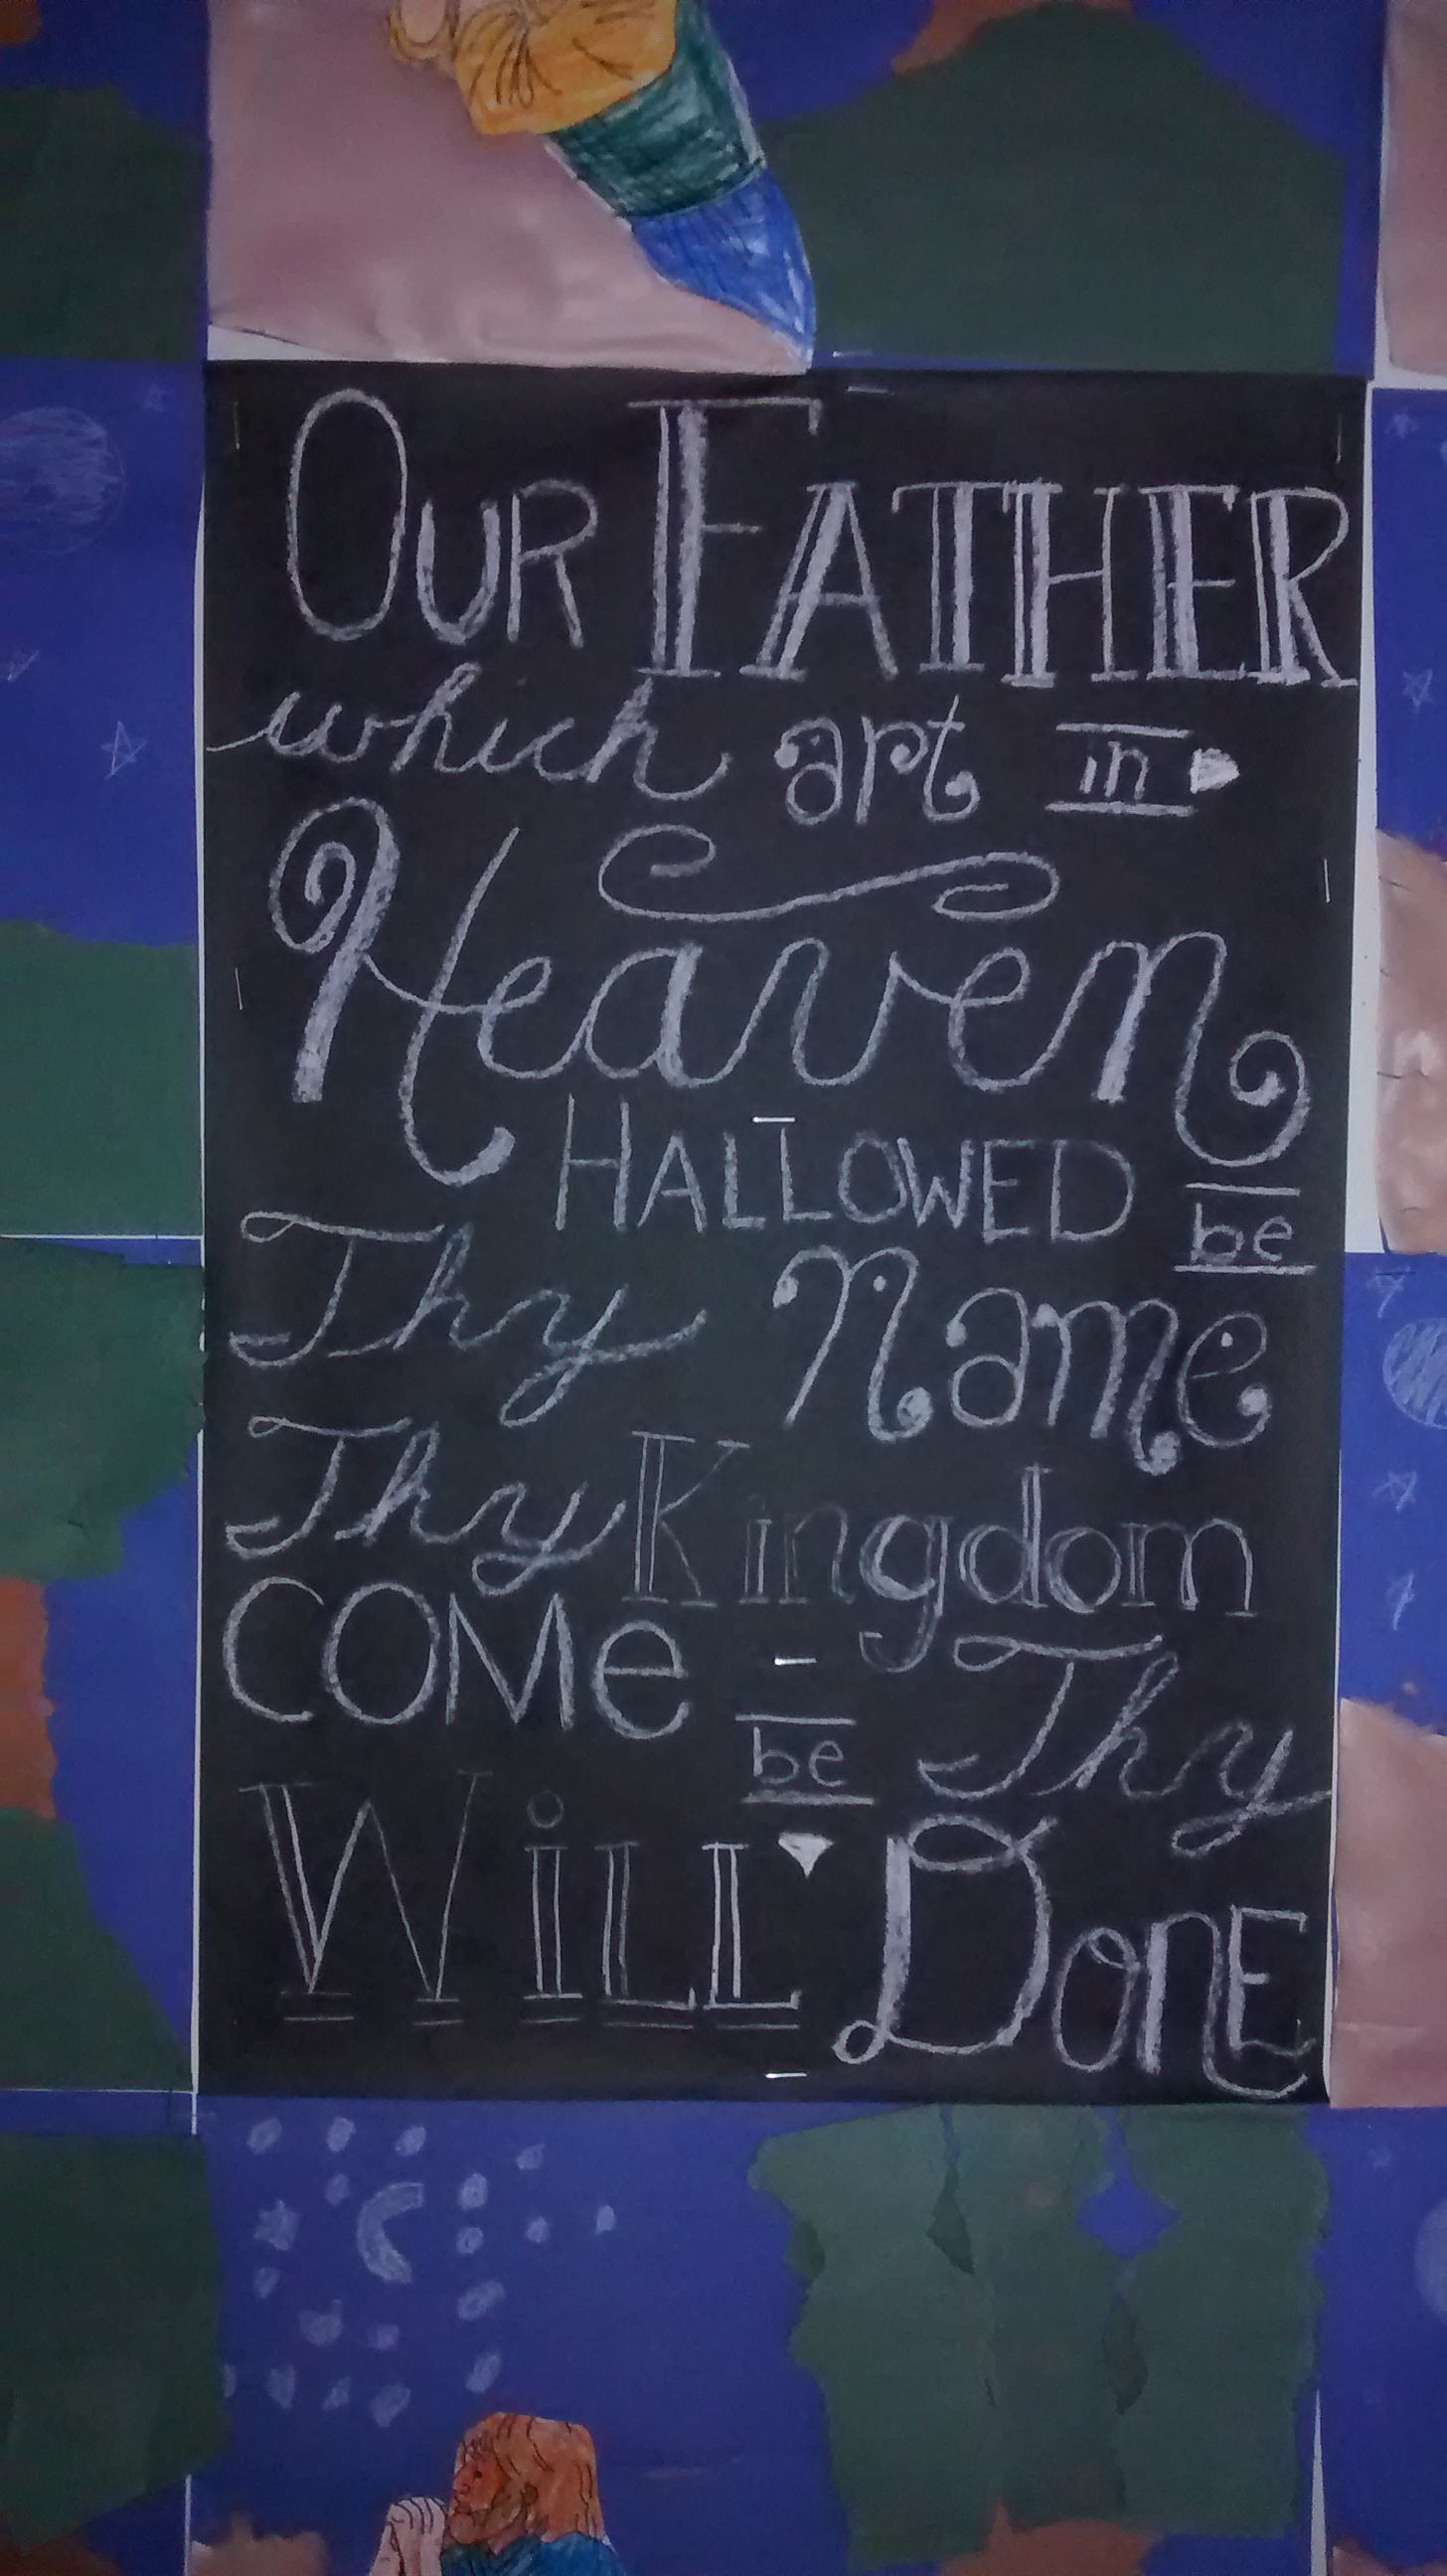 OUR FATHER
which art in
Heaven
HALLOWED be
Thy Name
Thy Kingdom
COMe - Thy
be
WiLL DonE